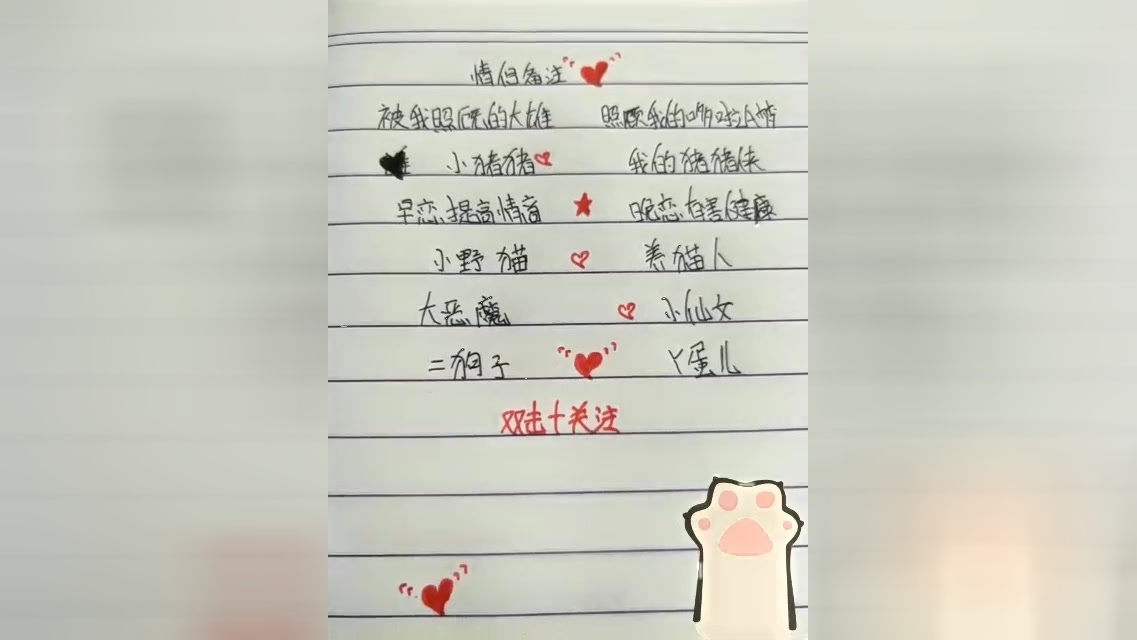 情侣备注
被我照顾的大雄 照顾我的哆啦A梦
小猪猪 我的猪猪侠
早恋提高情商 晚恋有害健康
小野猫 养猫人
大恶魔 小仙女
二狗子 丫蛋儿
双击+关注